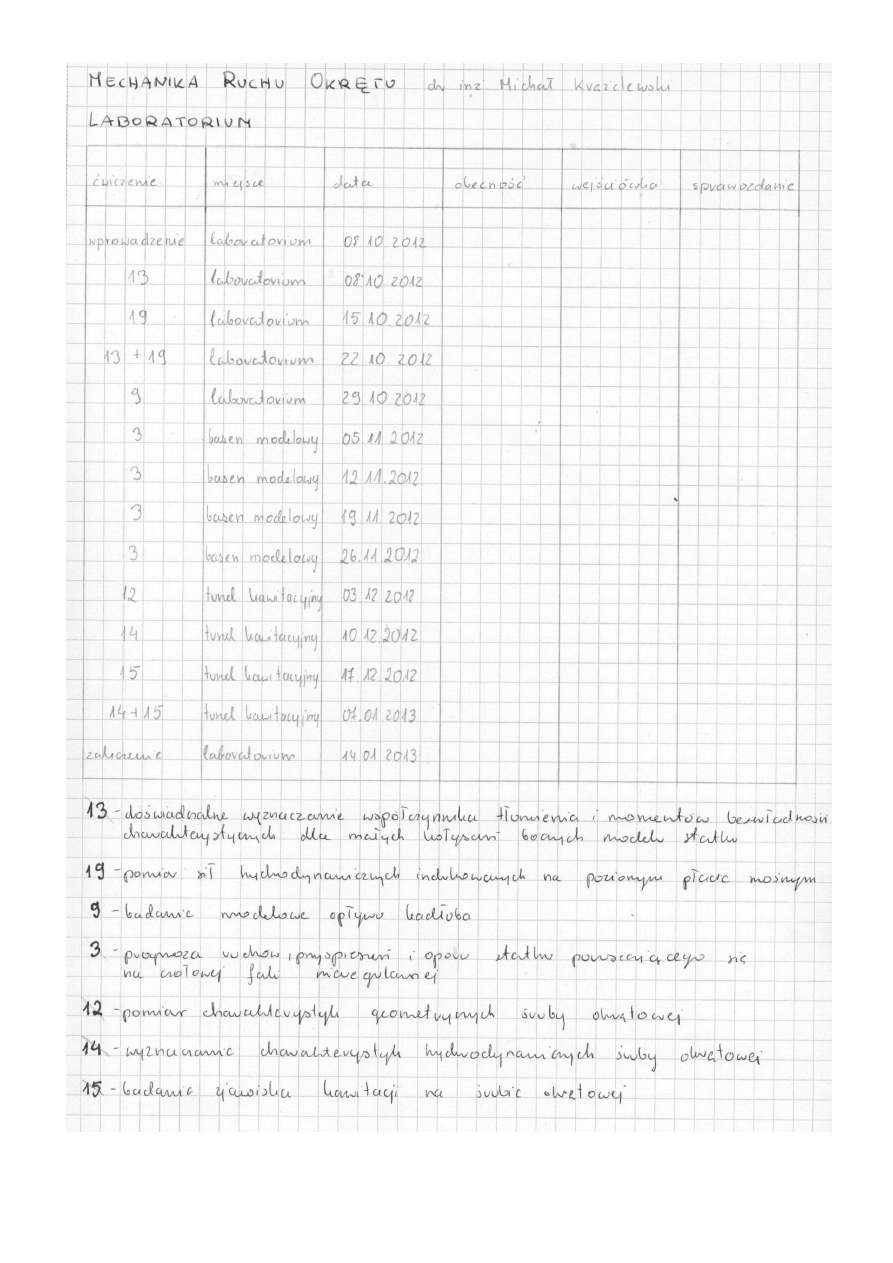 MECHANIKA RUCHU OKRĘTU dr inż Michał
LABORATORIUM
ćwiczenie miejsce data obecność wejściówka sprawozdanie
wprowadzenie laboratorium 08 10 2012
13 laboratorium 08 10 2012
19 laboratorium 15 10.2012
13 + 19 laboratorium 22 10 2012
9 laboratorium 29 10.2012
3 basen modelowy 05 11 2012
3 basen modelowy 12 11.2012
3 basen modelowy 19 11 2012
3 basen modelowy 26.11 2012
12 tunel kawitacyjny 03 12 2012
14 tunel kawitacyjny 10 12.2012
15 tunel kawitacyjny 17 12 2012
14+15 tunel kawitacyjny 07.01 2013
zaliczenie laboratorium 14 01 2013
13 - doświadczalne wyznaczanie współczynnika tłumienia i momentów bezwładności
charakterystycznych dla małych kołysań bocznych modelu statku
19 - pomiar sił hydrodynamicznych indukowanych na poziomym płacie nośnym
9 - badanie modelowe opływu kadłuba
3 - prognoza ruchów, przyspieszeń i oporu statku poruszającego się
na czołowej fali nieregularnej
12 - pomiar charakterystyk geometrycznych śruby okrętowej
14 - wyznaczanie charakterystyk hydrodynamicznych śruby okrętowej
15 - badanie zjawiska kawitacji na śrubie okrętowej